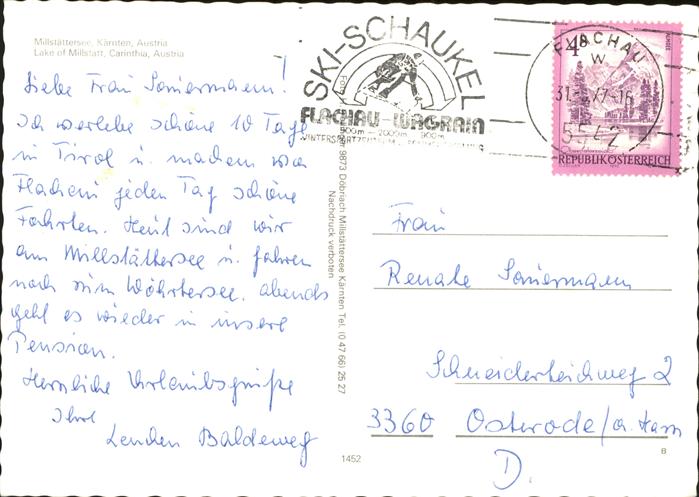 Millstättersee, Kärnten, Austria
Lake of Millstatt, Carinthia, Austria
Liebe Frau Sauermann!
Ich verlebe schöne 10 Tage
in Tirol u. machen von
Flachau jeden Tag schöne
Fahrten. Heut sind wir
am Millstättersee u. fahren
noch zum Wöhrtersee. abends
geht es wieder in unsere
Pension.
Herzliche Urlaubsgrüße
Ihre
Baldeweg
SKI-SCHAUKEL
FLACHAU-WAGRAIN
900m - 2000m - 900m
FLACHAU
W
5542
4 S
REPUBLIK ÖSTERREICH
9873 Döbriach Millstättersee Kärnten Tel. (0 47 66) 25 27
Nachdruck verboten
Frau
Renate Sauermann
Schneiderteichweg 2
3360 Osterode/a. Harz
D.
1452
B